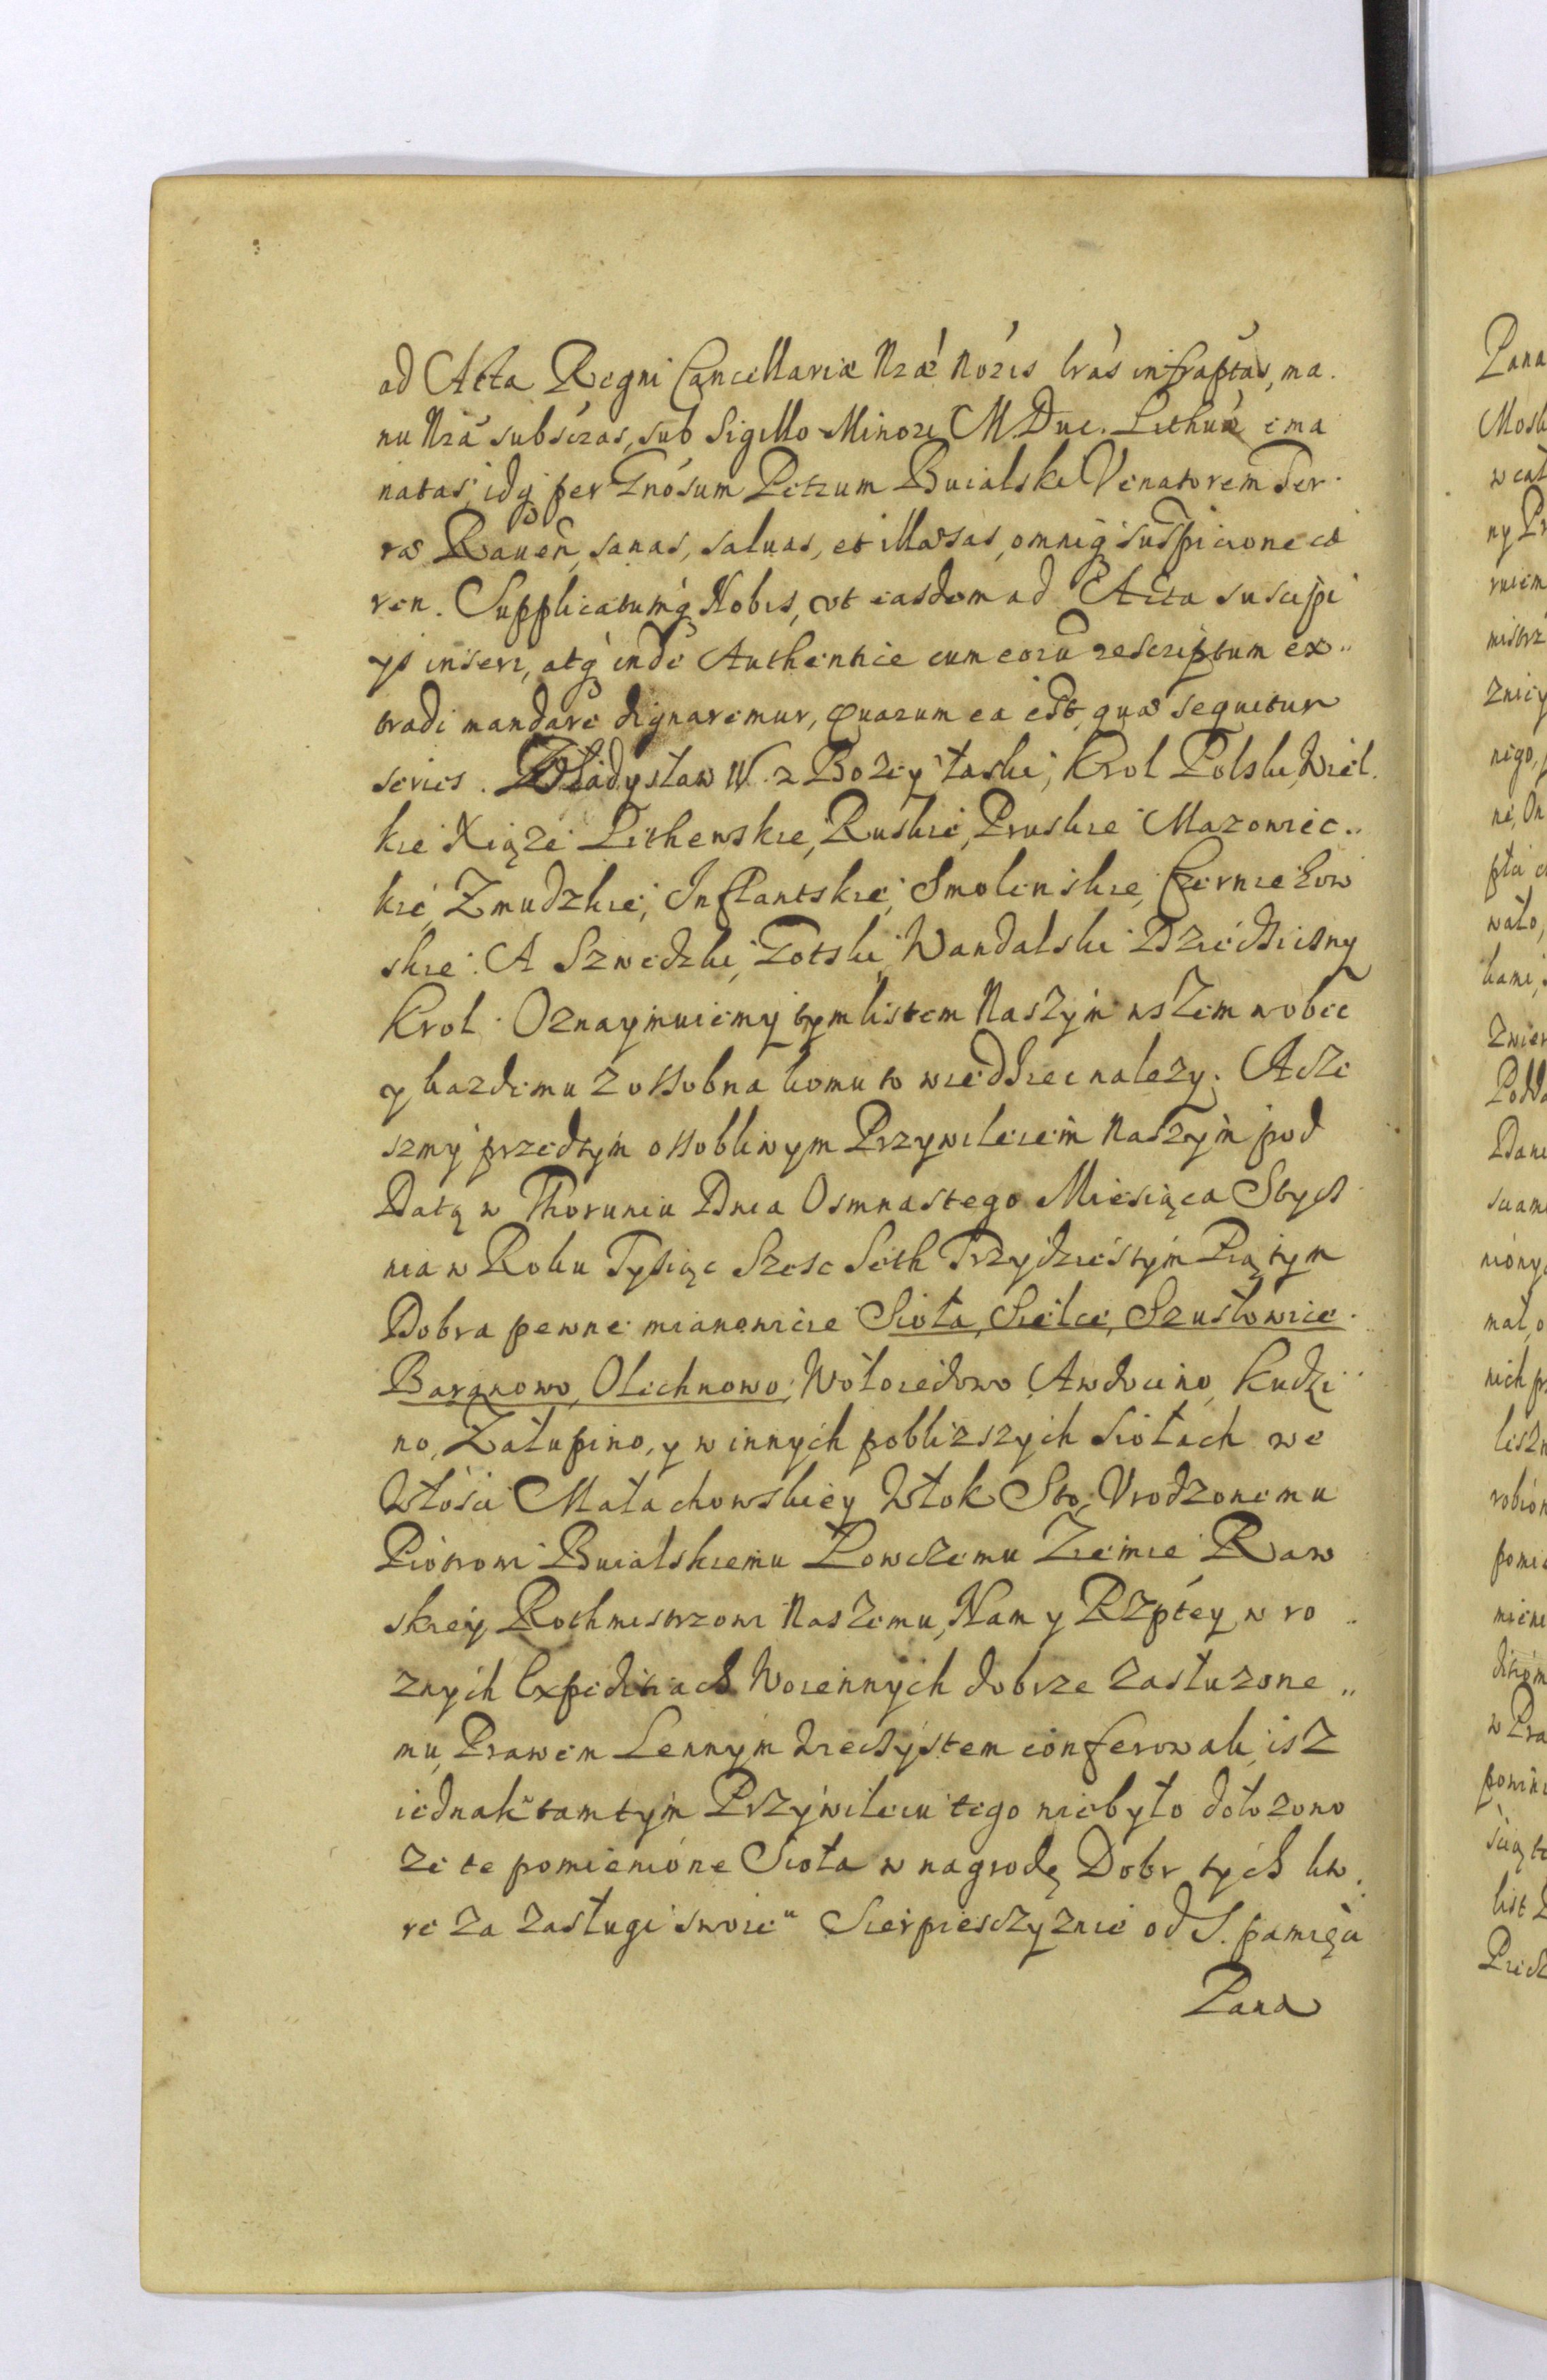 ad Acta Regni Cancellariæ Nræ Nōris lras infraptas, ma.
nu Nra subscras, sub Sigillo Minori M. Duc. Lithuæ ema
natas, idq per Gnosum Petrum Bucialski Venatorem Ter.
ræ Rauen, sanas, saluas, et illæsas, omniq suspicione ca
ren. Supplicatumq Nobis, ut easdem ad Acta suscipi
ys inseri, atq inde Authentice cum eoru rescriptum ex„
tradi mandare dignaremur, quarum ea est, quæ sequitur
series. Władysław IV. z Bozey łaski, Krol Polski, Wiel.
kie Xiąze Lithewskie, Ruskie, Pruskie Mazowiec„
kie, Zmudzkie, Inflantskie, Smolenskie, Czerniehow
skie. A Szwedzki, Gotski, Wandalski Dziedziczny
Krol. Oznaymuiemy tym listem Naszym wszem wobec
y kazdemu z ossobna komu to wiedziec nalezy. Acze
szmy przedtym ossobliwym Przywileiem Naszym pod
Datą w Thoruniu Dnia Osmnastego Miesiąca Stycz
nia w Roku Tysiąc Szesc Seth Trzydziestym Piątym
Dobra pewne mianowicie Sioła, Sielce, Szustowice.
Baranowo, Olechnowo, Wołosiedowo, Awdocino, Kudzi„
no, Załupino, y w innych poblizszych Siołach we
Włosci Małachowskiey Włok Sto, Urodzonemu
Piotrowi Bucialskiemu Łowczemu Ziemie Raw
skiey Rothmistrzowi Naszemu, Nam y Rzptey w ro„
znych Expeditiach Woiennych dobrze zasłuzone„
mu, Prawem Lennym Wieczystem conferowali, isz
iednak w tamtym Przywileiu tego niebyło dołozono
ze te pomienione Sioła w nagrodę Dobr tych kto.
re za zasługi swoie w Sierpiesczyznie od S. pamięci
Pana
Pana